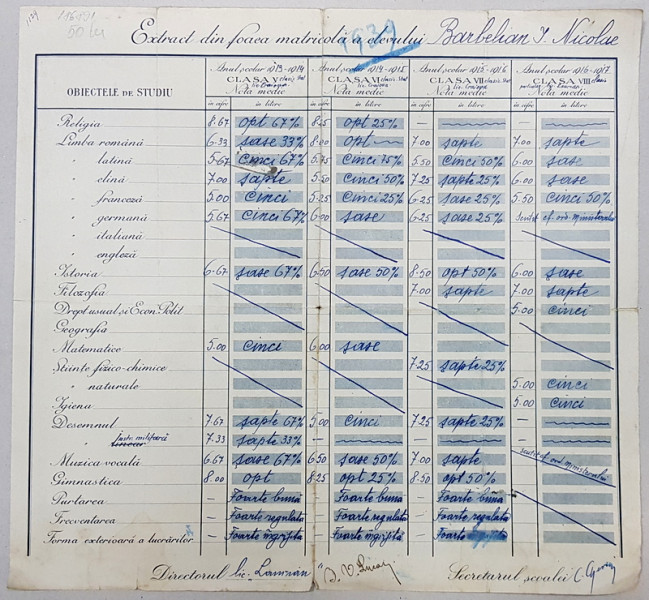 116191
50 lei
1939
Extract din foaea matricolă a elevului Barbelian I. Nicolae
OBIECTELE DE STUDIU
Anul școlar 1913-1914 Anul școlar 1914-1915 Anul școlar 1915-1916 Anul școlar 1916-1917
CLASA V CLASA VI CLASA VII CLASA VIII
Nota medie Nota medie Nota medie Nota medie
în cifre în litere în cifre în litere în cifre în litere în cifre în litere
Religia 8.67 opt 67% 8.25 opt 25% — —
Limba română 6.33 șase 33% 8.00 opt — 7.00 șapte 7.00 șapte
" latină 5.67 cinci 67% 5.75 cinci 75% 5.50 cinci 50% 6.00 șase
" elină 7.00 șapte 5.50 cinci 50% 7.25 șapte 25% 6.00 șase
" franceză 5.00 cinci 5.25 cinci 25% 6.25 șase 25% 5.50 cinci 50%
" germană 5.67 cinci 67% 6.00 șase 6.25 șase 25% scutit cf. ord. ministerului
" italiană
" engleză
Istoria 6.67 șase 67% 6.50 șase 50% 8.50 opt 50% 6.00 șase
Filozofia 7.00 șapte 7.00 șapte
Drept usual și Econ. Polit 5.00 cinci
Geografia
Matematice 5.00 cinci 6.00 șase
Științe fizico-chimice 7.25 șapte 25%
" naturale 5.00 cinci
Igiena 5.00 cinci
Desemnul 7.67 șapte 67% 5.00 cinci 7.25 șapte 25% — —
" linear Instr. militară 7.33 șapte 33% — — — —
Muzica vocală 6.67 șase 67% 6.50 șase 50% 7.00 șapte scutit cf. ord. ministerului
Gimnastica 8.00 opt 8.25 opt 25% 8.50 opt 50%
Purtarea — Foarte bună — Foarte bună — Foarte bună
Frecventarea — Foarte regulată — Foarte regulată — Foarte regulată
Forma exterioară a lucrărilor — Foarte îngrijită — Foarte îngrijită — Foarte îngrijită
Directorul lic. Secretarul școalei